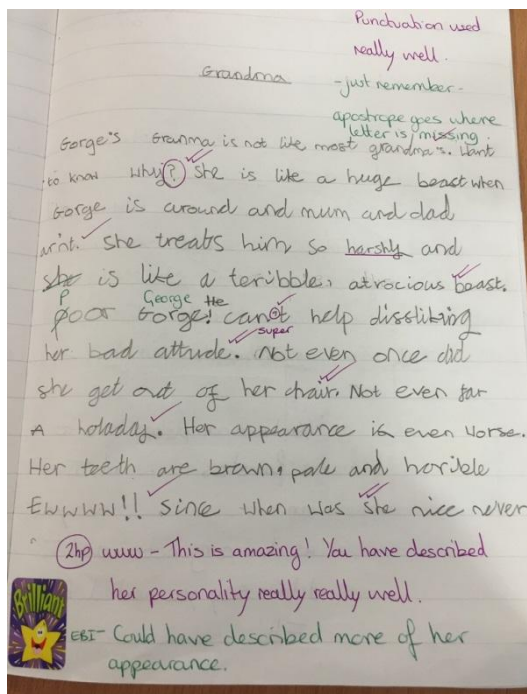 Punctuation used
really well.
Grandma
-just remember-
apostrope goes where
letter is missing.
Gorge's Granma is not like most grandma's. Want
to know why? She is like a huge beast when
Gorge is around and mum and dad
ar'nt. She treats him so harshly and
she is like a teribble, atrocious beast.
P George He
poor Gorge! can't help dissliking
super
her bad attude. Not even once did
she get out of her chair. Not even for
A holaday. Her appearance is even worse.
Her teeth are brown, pale and horible
Ewwww!! Since when was she nice never
2hp www - This is amazing! You have described
her personality really really well.
Brilliant
EBI- Could have described more of her
appearance.